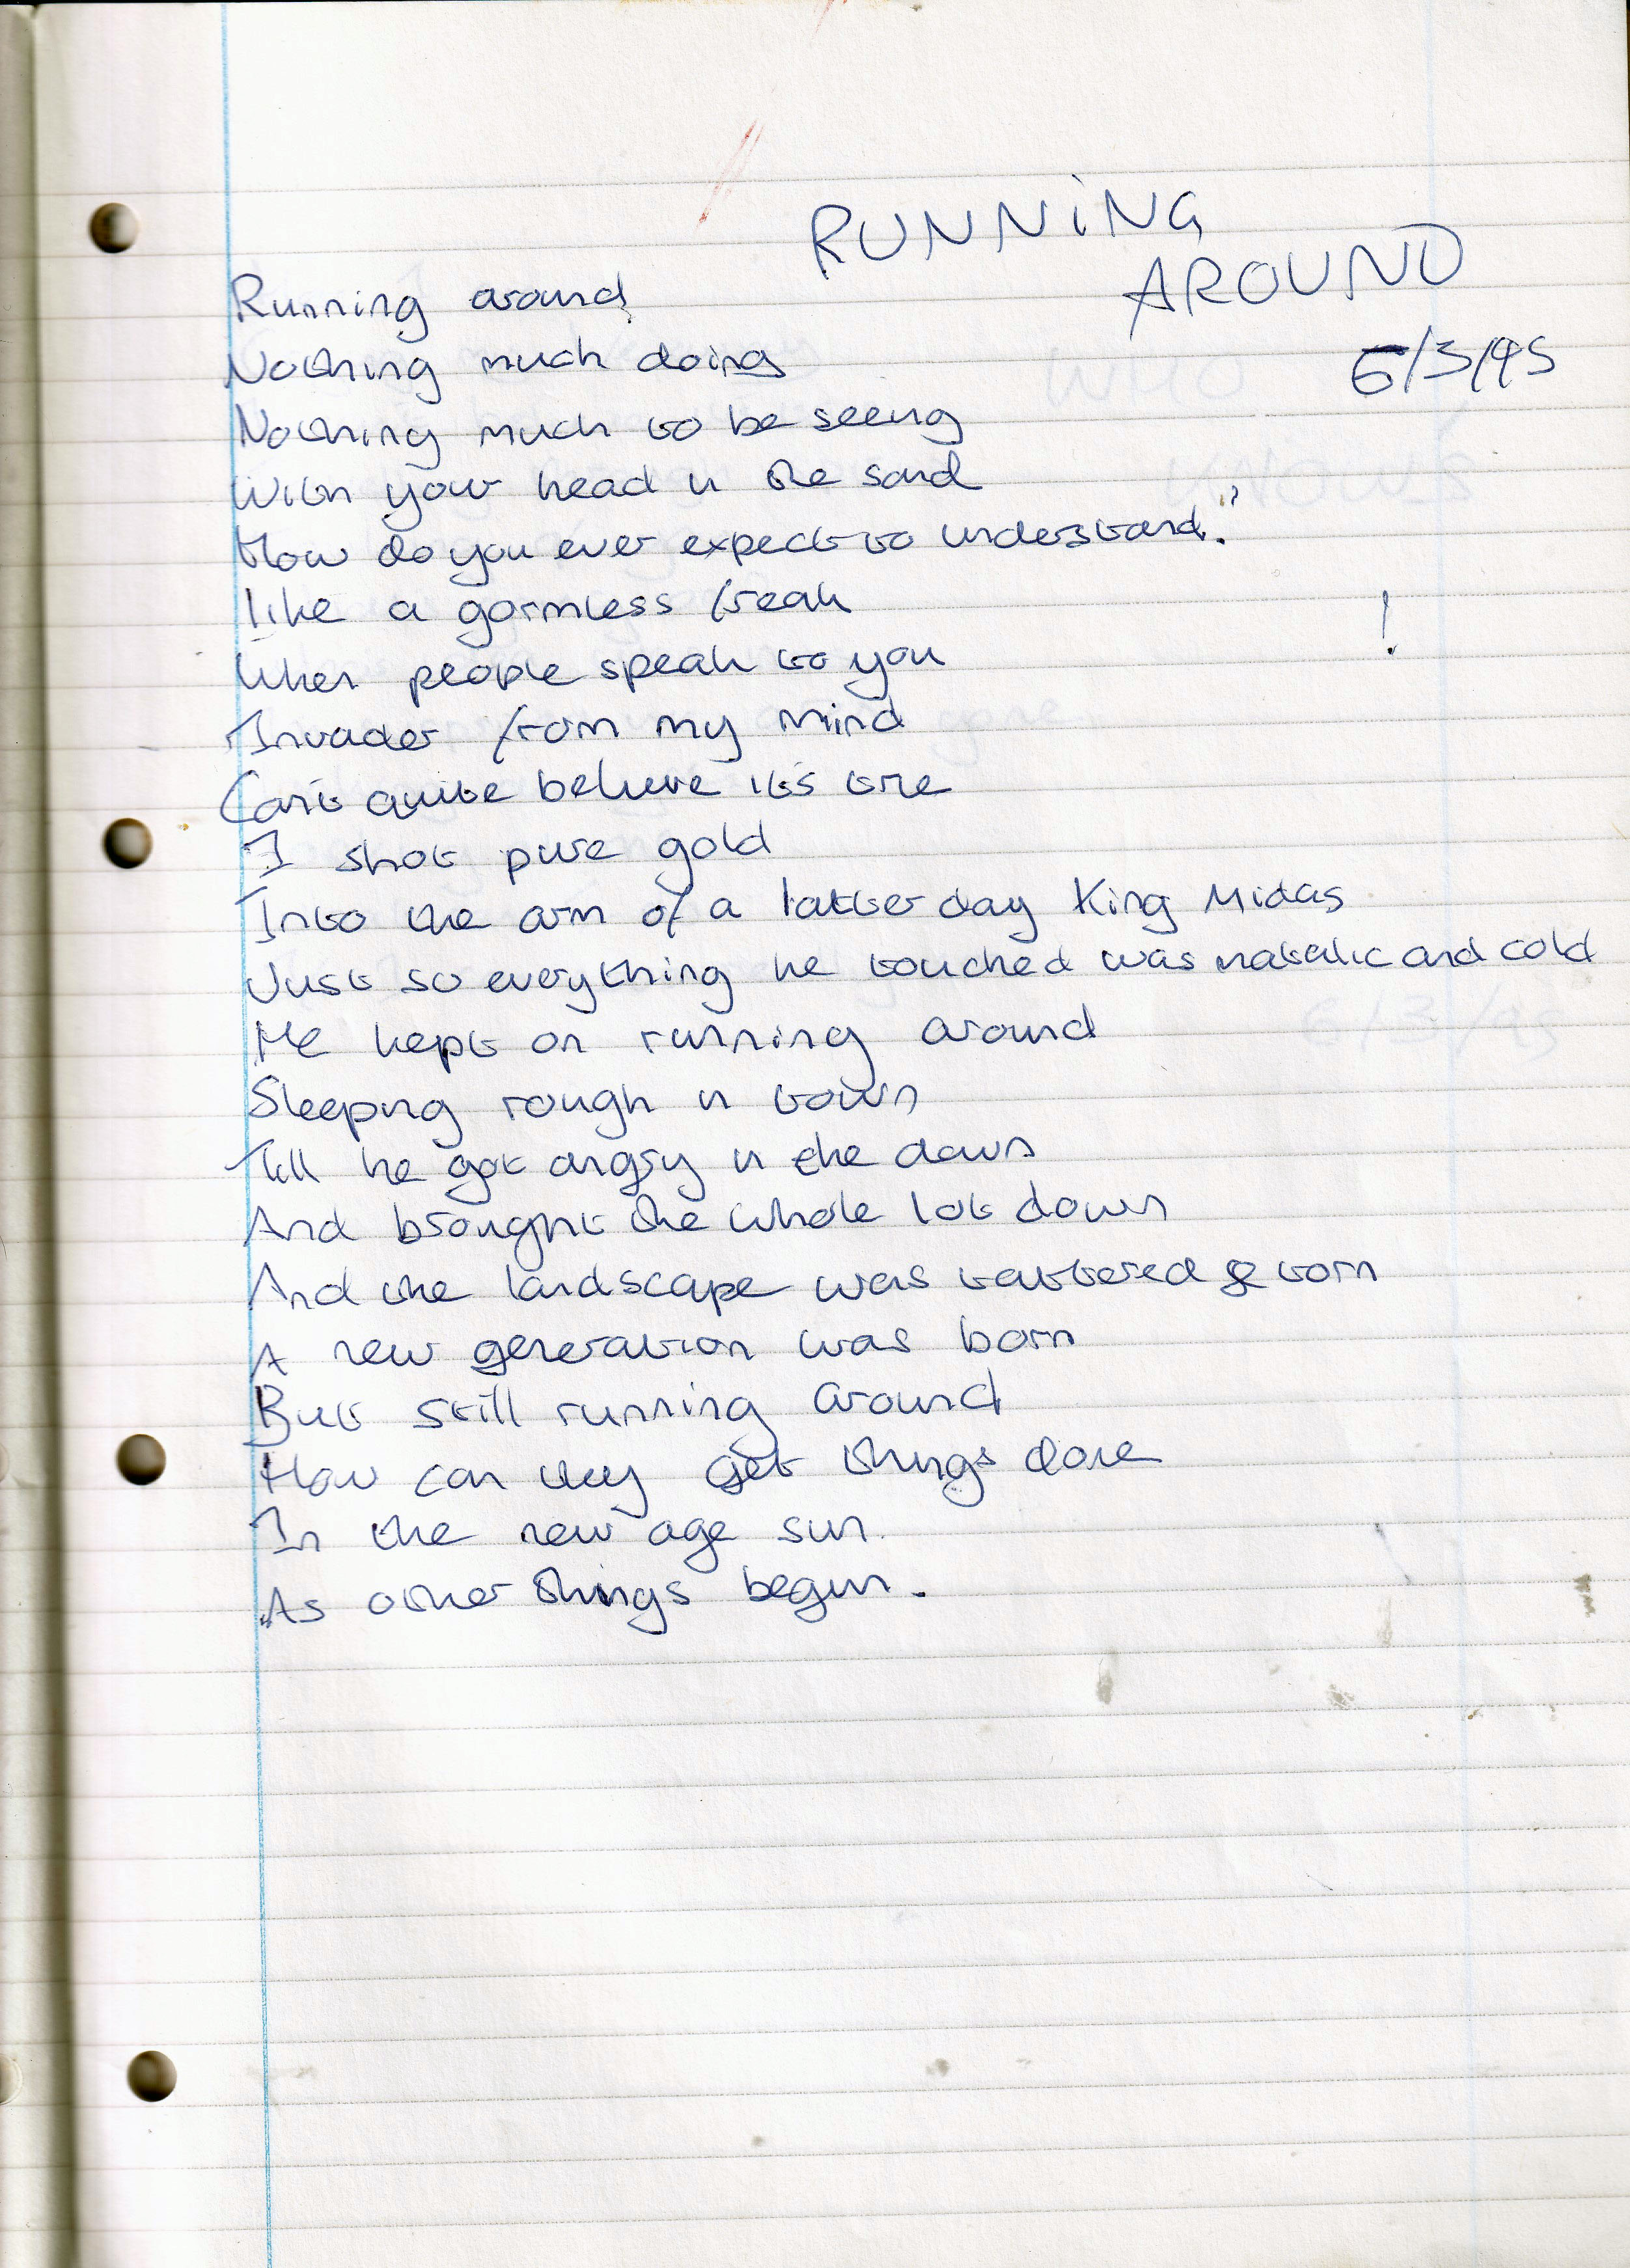 RUNNING
AROUND
6/3/95
Running around
Nothing much doing
Nothing much to be seeing
With your head in the sand
How do you ever expect to understand?
like a gormless freak !
When people speak to you
Invader from my mind
Can't quite believe it's true
I shot pure gold
Into the arm of a latter day King Midas
Just so everything he touched was metallic and cold
He kept on running around
Sleeping rough in town
Till he got angry in the dawn
And brought the whole lot down
And the landscape was tattered & torn
A new generation was born
But still running around
How can they get things done
In the new age sun.
As other things begun.